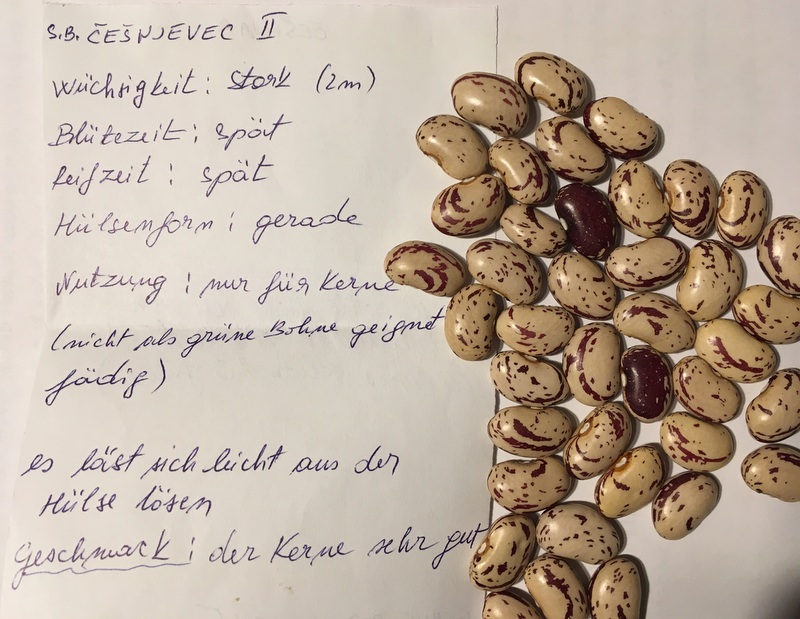 S.B. ČEŠNJEVEC II
Wüchsigkeit: stark (2m)
Blütezeit: spät
Reifzeit: spät
Hülsenform: gerade
Nutzung: nur für Kerne
(nicht als grüne Bohne geignet
fädig)
es läst sich leicht aus der
Hülse lösen
Geschmack: der Kerne sehr gut